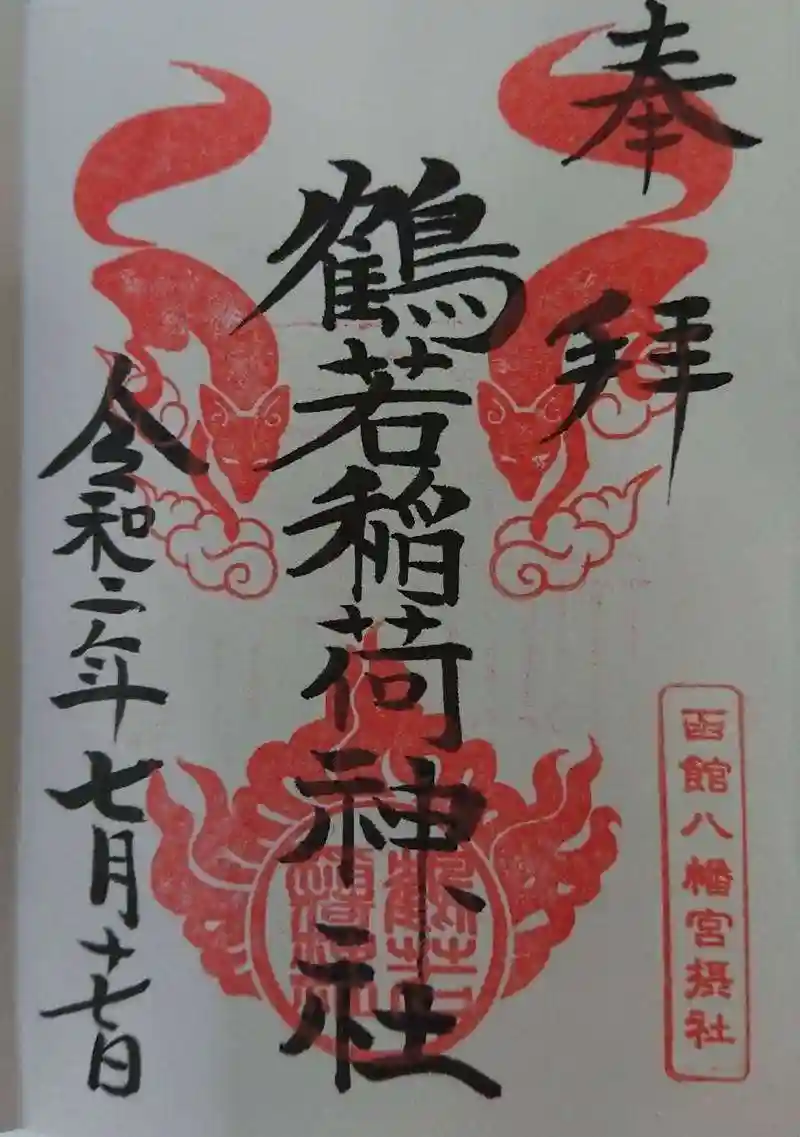 奉拝
函館八幡宮摂社
鶴若稲荷神社
令和二年七月十七日